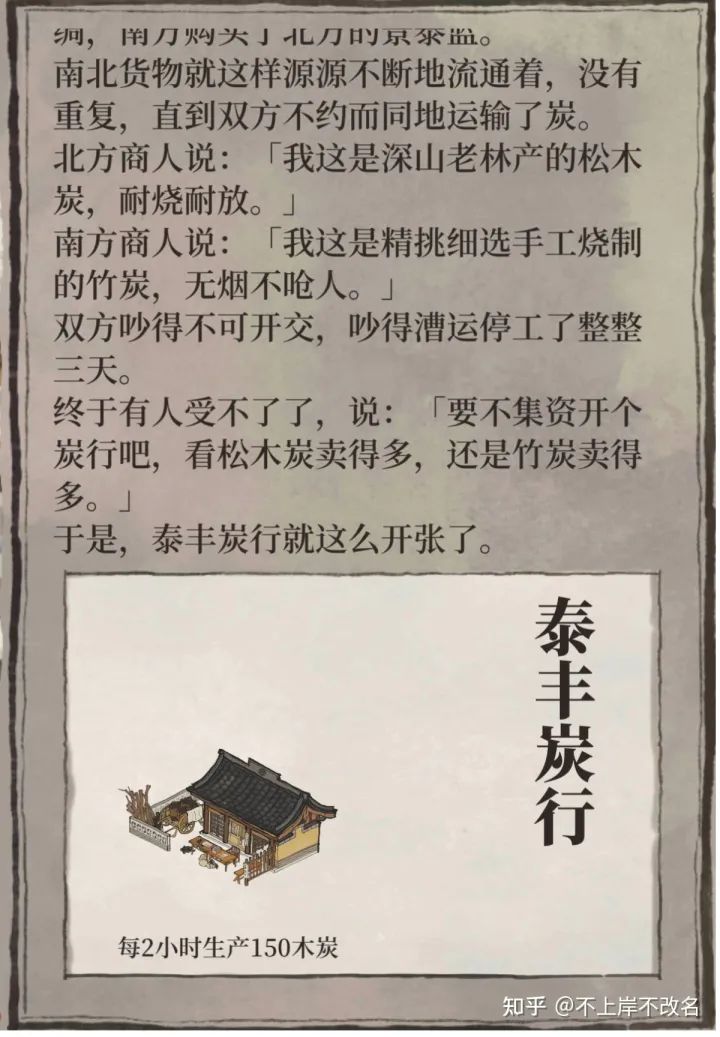 绸，南方购买了北方的景泰蓝。
南北货物就这样源源不断地流通着，没有
重复，直到双方不约而同地运输了炭。
北方商人说：「我这是深山老林产的松木
炭，耐烧耐放。」
南方商人说：「我这是精挑细选手工烧制
的竹炭，无烟不呛人。」
双方吵得不可开交，吵得漕运停工了整整
三天。
终于有人受不了了，说：「要不集资开个
炭行吧，看松木炭卖得多，还是竹炭卖得
多。」
于是，泰丰炭行就这么开张了。
泰丰炭行
每2小时生产150木炭
知乎 @不上岸不改名